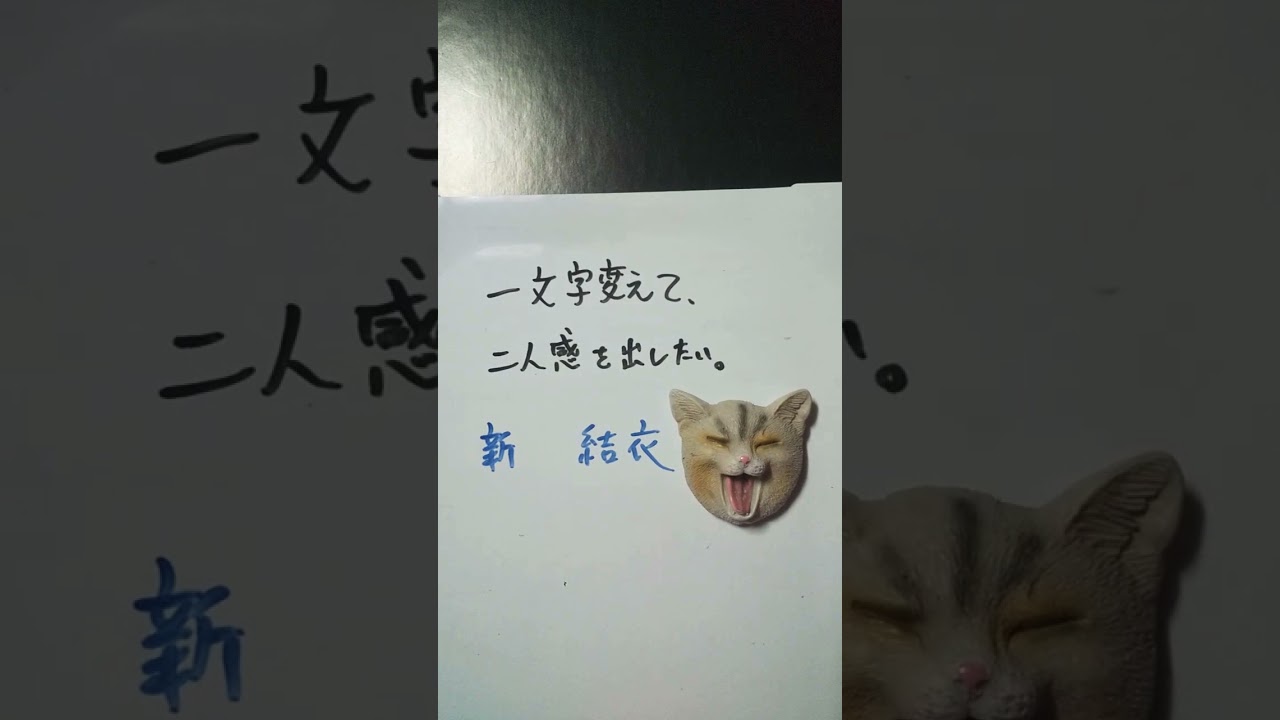 一文字変えて、
二人感を出したい。
新 結衣